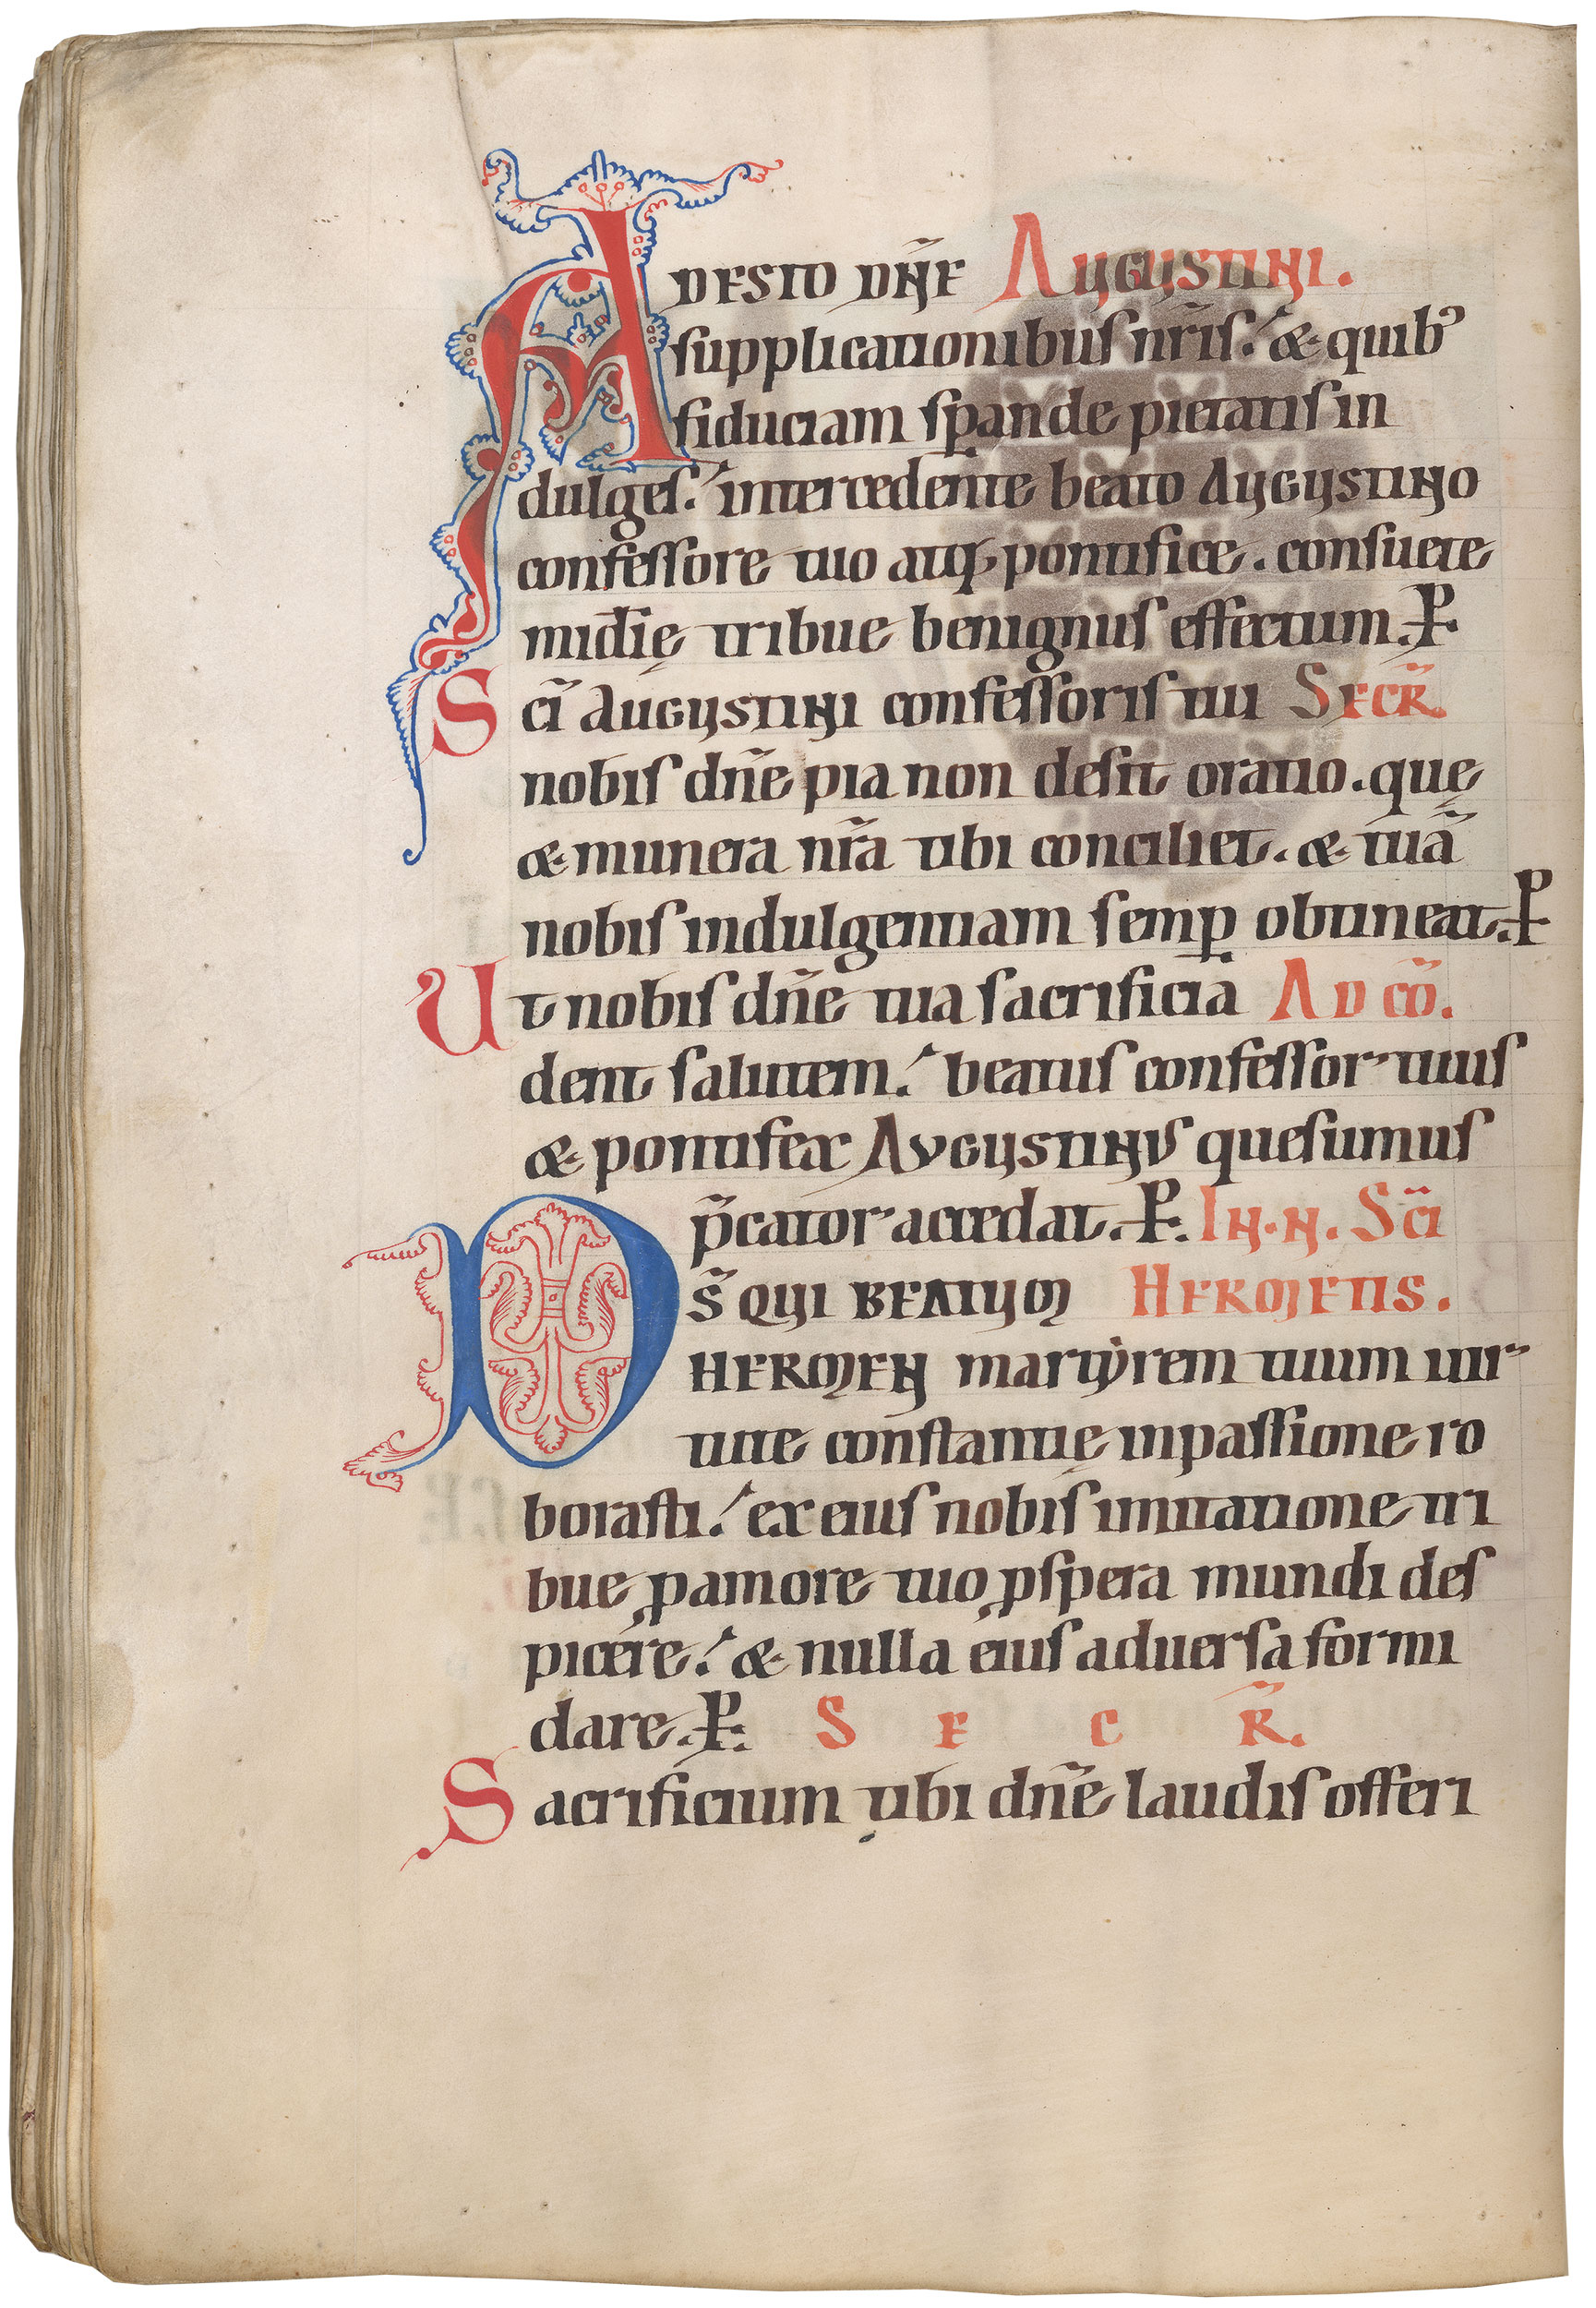 ADESTO DN̄E AUGUSTINI.
supplicationibus nr̄is. & quib᾿
fiduciam sp̱andę pietatis in
dulges. intercedente beato AUGUSTINO
confessore tuo atq; pontifice. consuetę
mīdię tribue benignus effectum. P̵
Sc̄i AUGUSTINI confessoris tui SECR̄
nobis dn̄e pia non desit oratio. quę
& munera nr̄a tibi conciliet. & tuā
nobis indulgentiam semp̱ obtineat. P̵
Ut nobis dn̄e tua sacrificia AD CŌ.
dent salutem. beatus confessor tuus
& pontifex AUGUSTINUS quesumus
p̄cator accedat. P̵. IN.N. SC̄I
DS̄ QUI BEATUM HERMETIS.
HERMEN martẏrem tuum uir
tute constantię inpassione ro
borasti. ex eius nobis imitatione tri
bue ꝓamore tuo ꝓspera mundi des
picere. & nulla eius aduersa formi
dare. P̵. S E C R̄.
Sacrificium tibi dn̄e laudis offeri